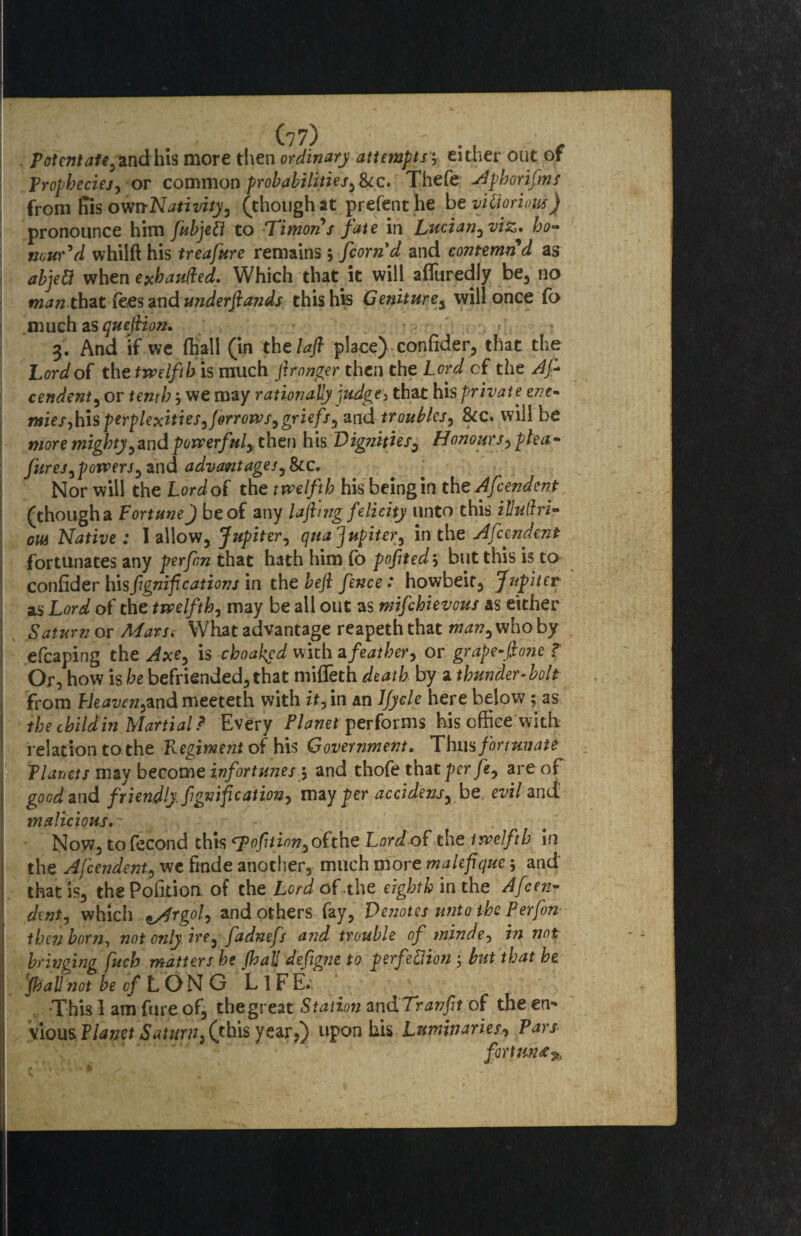 (77)
Potentate, and his more then ordinary attempts; either out of
Prophecies, or common probabilities, &c. These Aphorisms
from his own Nativity, (though at present he be victorious)
pronounce him subject to Timon's fate in Lucian, viz. ho-
nour'd whilst his treasure remains; scorn'd and contemn'd as
abject when exhausted. Which that it will assuredly be, no
man that sees and understands this his Geniture, will once so
much as question.
3. And if we shall (in the last place) consider, that the
Lord of the twelfth is much stronger then the Lord of the As-
cendent, or tenth; we may rationally judge, that his private ene-
mies, his perplexities, sorrows, griefs, and troubles, &c. will be
more mighty, and powerful, then his Dignities, Honours, plea-
sures, powers, and advantages, &c.
Nor will the Lord of the twelfth his being in the Ascendent
(though a Fortune) be of any lasting felicity unto this illustri-
ous Native: I allow, Jupiter, qua Jupiter, in the Ascendent
fortunates any person that hath him so posited; but this is to
consider his significations in the best sence: howbeit, Jupiter
as Lord of the twelfth, may be all out as mischievous as either
Saturn or Mars. What advantage reapeth that man, who by
escaping the Axe, is choaked with a feather, or grape-stone?
Or, how is he befriended, that misseth death by a thunder-bolt
from Heaven, and meeteth with it, in an Isycle here below; as
the child in Martial? Every Planet performs his office with
relation to the Regiment of his Government. Thus fortunate
Planets may become infortunes; and those that per se, are of
good and friendly signification, may per accidens, be evil and
malicious.
Now, to second this Position, of the Lord of the twelfth in
the Ascendent, we finde another, much more malefique; and
that is, the Position of the Lord of the eighth in the Ascen-
dent, which Argol, and others say, Denotes unto the Person
then born, not only ire, sadness and trouble of minde, in not
bringing such matters he shall designe to perfection; but that he
shall not be of LONG LIFE.
This I am sure of, the great Station and Transit of the en-
vious Planet Saturn, (this year,) upon his Luminaries, Pars
fortunæ,